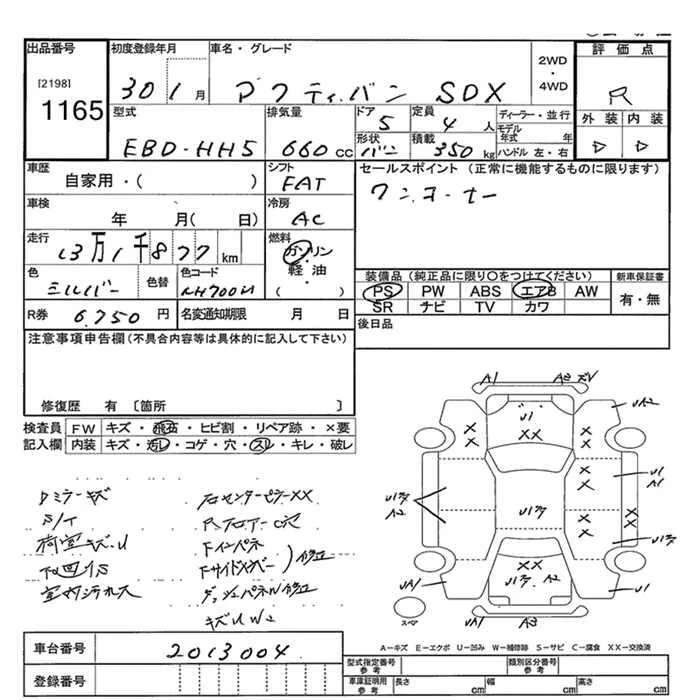 出品番号 初度登録年月 車名・グレード 2WD・4WD 評価点
[2198]
1165
30 1月 アクティバン SDX R
型式 排気量 ドア 定員 ディーラー・並行 外装 内装
EBD-HH5 660cc 5 4人 モデル年式 年
形状 積載 ハンドル 左・右
バン 350kg D D
車歴 シフト セールスポイント (正常に機能するものに限ります)
自家用・( ) FAT ワンオーナー
車検 冷房
年 月( 日) AC
走行 燃料
13万1千877km ガソリン・軽油
色 色替 色コード ( )
シルバー NH700M
装備品 (純正品に限り○をつけてください) 新車保証書
PS PW ABS エアB AW 有・無
SR ナビ TV カワ
R券 6,750円 名変通知期限 月 日 後日品
注意事項申告欄 (不具合内容等は具体的に記入して下さい)
修復歴 有 〔箇所 〕
検査員記入欄 FW キズ・飛石・ヒビ割・リペア跡・×要
内装 キズ・汚レ・コゲ・穴・スレ・キレ・破レ
Dミラーキズ
S/T
荷室キズU
下回リS
室内汚れ大
右センターピラーXX
Rフロアー穴
Fインパネ
Fサイドメンバー 修正
ダッシュパネル修正
キズU W2
A1 A3
A2
U1
XX
U1
A1
A2
XX
UA1 A2 U1
スペア UA1 A3
A-キズ E-エクボ U-凹み W-補修跡 S-サビ C-腐食 XX-交換済
車台番号 2013004
登録番号
型式指定番号 参考 類別区分番号 参考
車庫証明用 参考 長さ cm 幅 cm 高さ cm